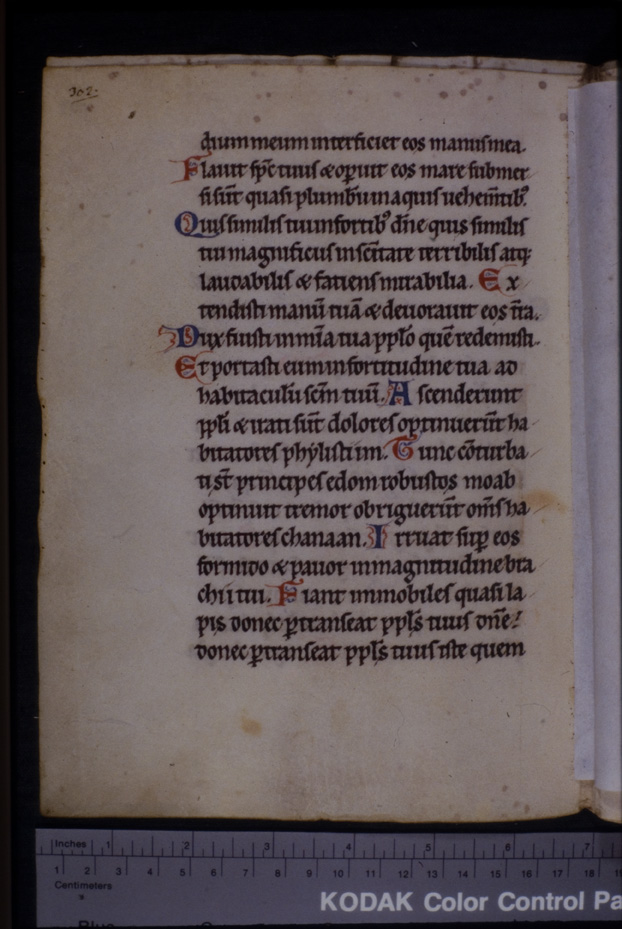 302.
dium meum interficiet eos manus mea.
Flauit sp̄c tuus & operuit eos mare submer
si sūt quasi plumbū in aquis uehem̄tib᷒.
Quis similis tui in fortib᷒ dn̄e quis similis
tui magnificus in sc̄itate terribilis atq;
laudabilis & fatiens mirabilia. Ex
tendisti manū tuā & deuorauit eos t̄ra.
Dux fuisti in mīa tua pplo quē redemisti.
Et portasti eum in fortitudine tua ad
habitaculū sc̄m tuū. Ascenderunt
ppli & irati sūt dolores optinuerūt ha
bitatores phylistiim. Tunc cōturba
ti st̄ principes edom robustos moab
optinuit tremor obriguerūt om̄s ha
bitatores chanaan. Irruat sup̄ eos
formido & pauor in magnitudine bra
chii tui. Fiant immobiles quasi la
pis donec ꝑtranseat ppls̄ tuus dn̄e!
donec ꝑtranseat ppls̄ tuus iste quem
Inches 1 2 3 4 5 6 7
1 2 3 4 5 6 7 8 9 10 11 12 13 14 15 16 17 18
Centimeters
KODAK Color Control Pa